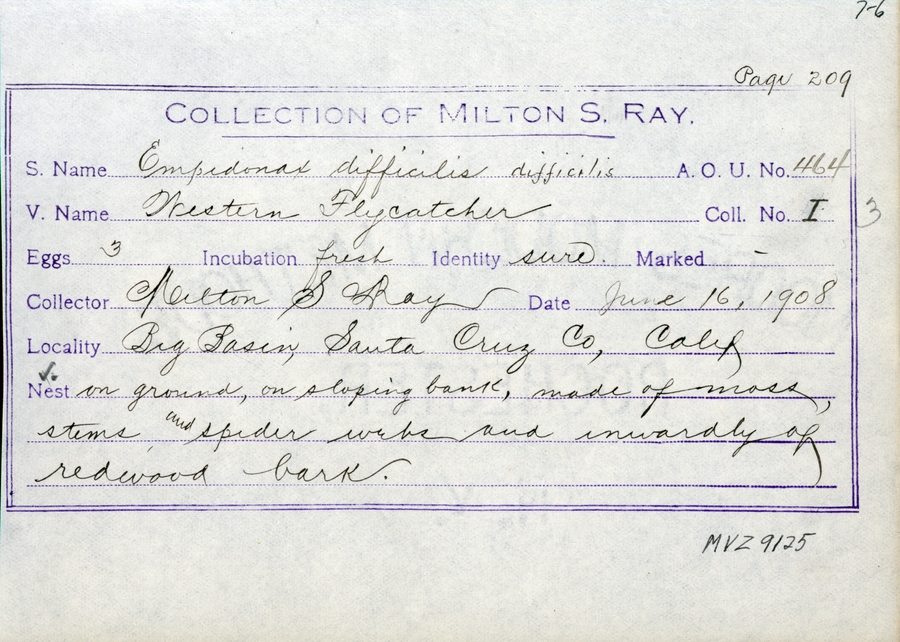 7-6
Page 209
COLLECTION OF MILTON S. RAY.
S. Name Empidonax difficilis difficilis A. O. U. No. 464
V. Name Western Flycatcher Coll. No. I 3
Eggs 3 Incubation fresh Identity sure. Marked -
Collector Milton S Ray Date June 16, 1908
Locality Big Basin, Santa Cruz Co, Calif
Nest on ground, on sloping bank, made of moss,
stems and spider webs and inwardly of
redwood bark.
MVZ 9125